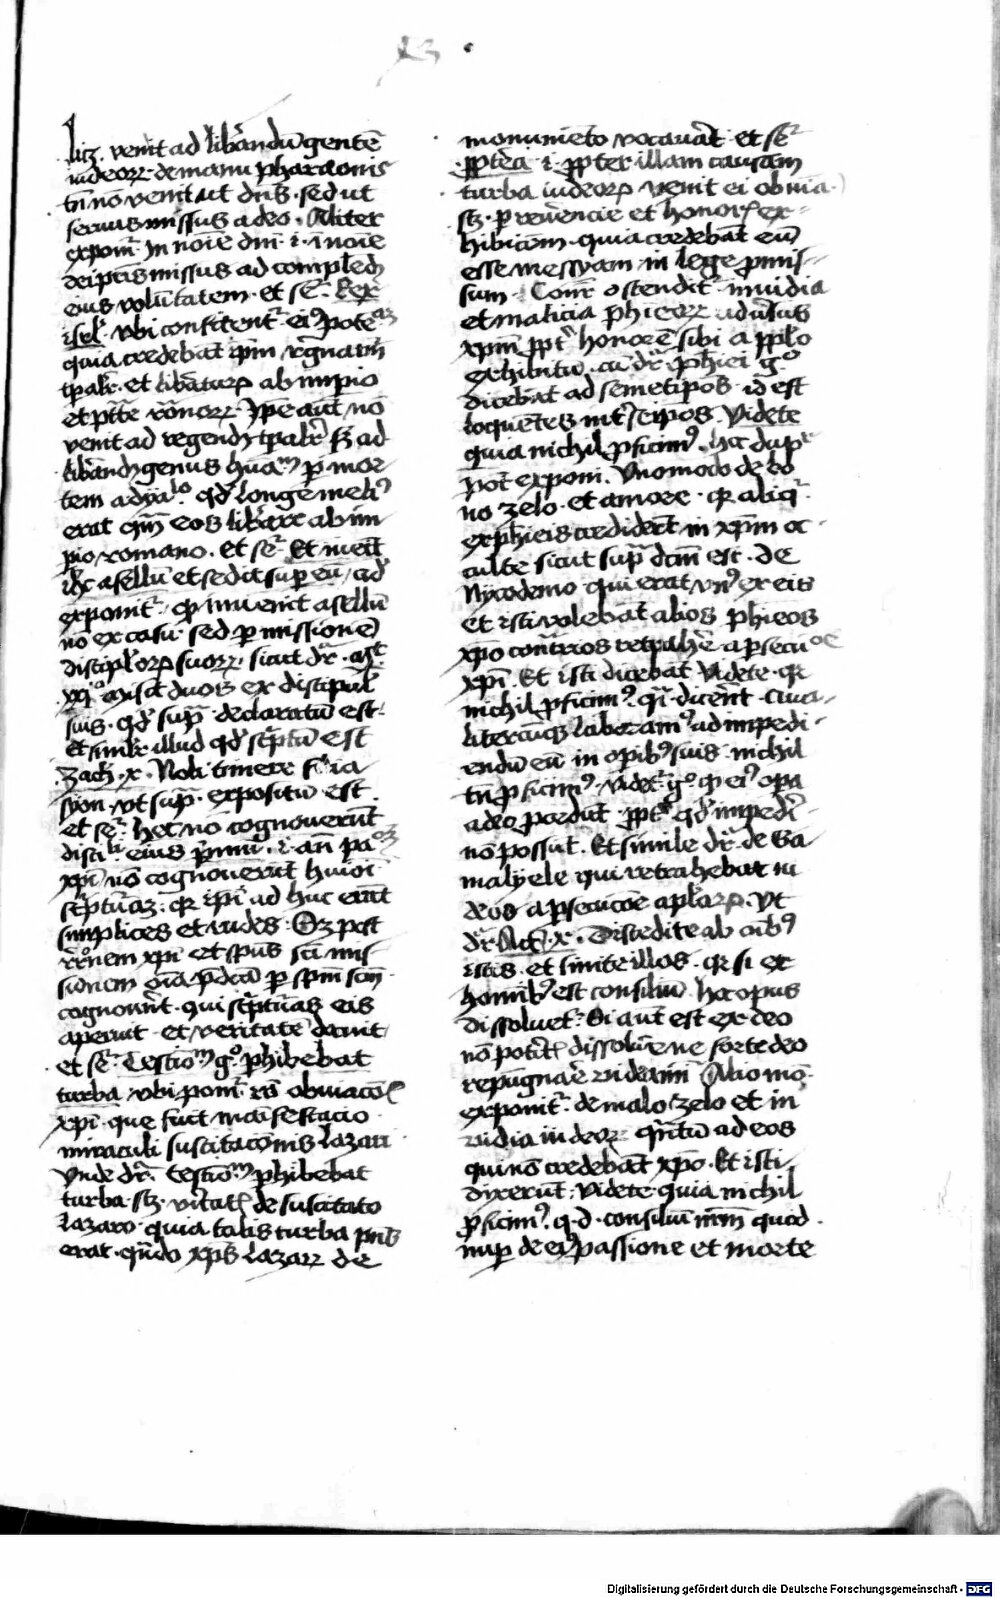 licz. venit ad libãndũ gentẽ
iudeorꝝ de manu pharaonis
tñ nõ venit ut dñs. sed ut
seruus missus a deo. Aliter
exponit᷑ In noĩe dñi .i. i noĩe
dei pt̃is missus ad complend
eius volũtatem. et seqͥ. Rex
isrl̃. vbi confitent᷑ eiꝰ potẽ
quia credebãt ip̃m regnaturũ
tp̃alit᷑. et libãturꝝ ab impio
et ptãte rõnorꝝ. Ip̃e aũt nõ
venit ad regendũ tp̃alit᷑ sꝫ ad
libãndũ genus huãm p mor
tem a dyalo qd̃ longe meliꝰ
erat qm̃ eos librare ab im
pio romano. et seqͥ. Et inuẽit
ihc asellũ et sedit super eũ, id
exponit᷑. qꝛ inuenit asellũ
nõ ex casu sed p missionẽ
discipl̃orꝝ suorꝝ. sicut dr̃. mͭ
xxjº misit duos ex discipul̃
suis. qd̃ supᵃ declaratũ est.
et similit᷑ illud qd̃ scͥptũ est
Zach. x. Noli timere filia
syon. vt supᵃ. expositũ est.
et seqͥ. hec nõ cognouerũt
discipl̃i eius primũ .i. añ paõꝫ
xpi nõ cognouerũt huiõi
scͥptũaꝫ. qꝛ ipͥi ad huc erãt
simplices et rudes. Sꝫ post
rõnem xpi et spũs sci mis
sionem oĩa p̃dcã p spm̃ scm̃
cognouer̃t. qui scͥptũas eis
aperuit et veritatẽ docuit
et seqͥ. Testiom̃ gº phibebat
turba vbi ponit᷑ rõ obuiacõis
xpi. que fuit maĩfestacio
miraculi suscitacõnis lazari
Vnde dr̃. testiom̃ phibebat
turba. sꝫ. vˀitatis de suscitato
lazaro. quia talis turba p̃ns
erat qñdo xps lazarꝫ de
monumẽto vocauit. et seqͥ
ppt̃ea .i. ppter illam causam
turba iudeorꝝ venit ei obuia.
sꝫ. p reuẽncie et honoris ex=
hibicõm. quia credebãt eũ
esse messyam in lege p̃mis=
sum. Cont᷑ ostendit᷑ inuidia
et malicia phieorꝝ aduˀsus
xpm̃ ppt᷑ honorẽ sibi a pplo
exhibitũ. cũ dr̃. phiei gº
dicebãt ad semetipos. id est
loquẽtes int᷑ seipos. Videte
quia nichil pficimꝰ. hoc dupͬ
põt exponi. Vnomodo de bo
no zelo. et amore. qꝛ aliqͥ
ex phieis crediderũt in xpm̃ oc
culte sicut supᵃ dcm̃ est. de
Nycodemo qui erat vnꝰ ex eis
et isti volebãt alios phieos
xpo contᵃrios retrahˀe a psecucõe
xpi. Et isti dicebãt videte. qꝛ
nichil pficimꝰ. qͥ. dicerẽt. inu
liter laboramꝰ ad impedi=
endũ eũ in opibꝰ suis. nichil
tñ pficimꝰ. videt᷑ gº qꝛ eiꝰ opa
a deo pcedũt. ppt᷑ qd̃ impedirˀ
nõ possũt. Et simile dr̃. de Ga
malyele qui retrahebat iu
deos a psecucõe aplorꝝ. vt
dr̃ Act. v. Discedite ab oĩbꝰ
istis. et sinite illos. qꝛ si ex
homĩbꝰ est consiliũ hoc opus
dissoluet᷑. Si aut est ex deo
nõ poteritis dissoluˀe ne forte deo
repugnarˀe videamĩ Alio mõ.
exponit᷑. de malo zelo et in
uidia iudeorꝝ qñtũ ad eos
qui nõ credebãt xpo. Et isti
dixerũt. videte quia nichil
pficimꝰ. q. d. consiliũ nr̃m quod
nup de eiꝰ passione et morte
Digitalisierung gefördert durch die Deutsche Forschungsgemeinschaft - DFG